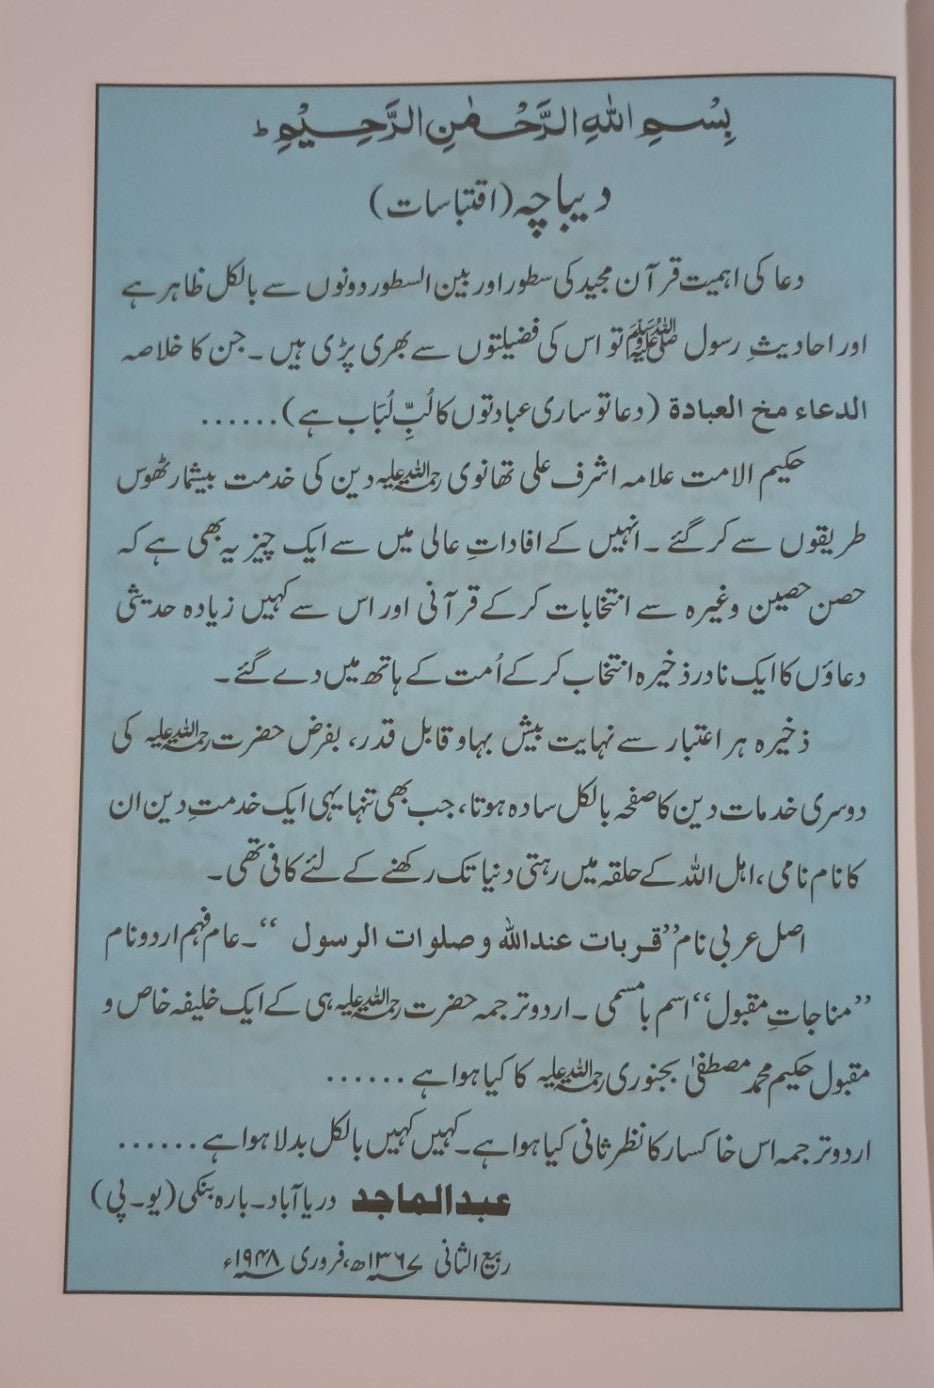 بِسْمِ اللهِ الرَّحْمٰنِ الرَّحِيْمِ ط
دیباچہ (اقتباسات)
دعا کی اہمیت قرآن مجید کی سطور اور بین السطور دونوں سے بالکل ظاہر ہے
اور احادیثِ رسول ﷺ تو اس کی فضیلتوں سے بھری پڑی ہیں۔ جن کا خلاصہ
الدعاء مخ العبادة (دعا تو ساری عبادتوں کا لُبِّ لُبَاب ہے)......
حکیم الامت علامہ اشرف علی تھانوی رحمۃ اللہ علیہ دین کی خدمت بیشمار ٹھوس
طریقوں سے کر گئے۔ انہیں کے افاداتِ عالی میں سے ایک چیز یہ بھی ہے کہ
حصن حصین وغیرہ سے انتخابات کر کے قرآنی اور اس سے کہیں زیادہ حدیثی
دعاؤں کا ایک نادر ذخیرہ انتخاب کر کے اُمت کے ہاتھ میں دے گئے۔
ذخیرہ ہر اعتبار سے نہایت بیش بہا و قابل قدر، بفرض حضرت رحمۃ اللہ علیہ کی
دوسری خدمات دین کا صفحہ بالکل سادہ ہوتا، جب بھی تنہا یہی ایک خدمتِ دین ان
کا نام نامی، اہل اللہ کے حلقہ میں رہتی دنیا تک رکھنے کے لئے کافی تھی۔
اصل عربی نام ”قربات عند اللہ و صلوات الرسول“۔ عام فہم اردو نام
”مناجاتِ مقبول“ اسم بامسمی۔ اردو ترجمہ حضرت رحمۃ اللہ علیہ ہی کے ایک خلیفہ خاص و
مقبول حکیم محمد مصطفیٰ بجنوری رحمۃ اللہ علیہ کا کیا ہوا ہے......
اردو ترجمہ اس خاکسار کا نظر ثانی کیا ہوا ہے۔ کہیں کہیں بالکل بدلا ہوا ہے......
عبدالماجد دریا آباد۔ بارہ بنکی (یو۔پی)
ربیع الثانی ۱۳۶۷ھ، فروری ۱۹۴۸ء